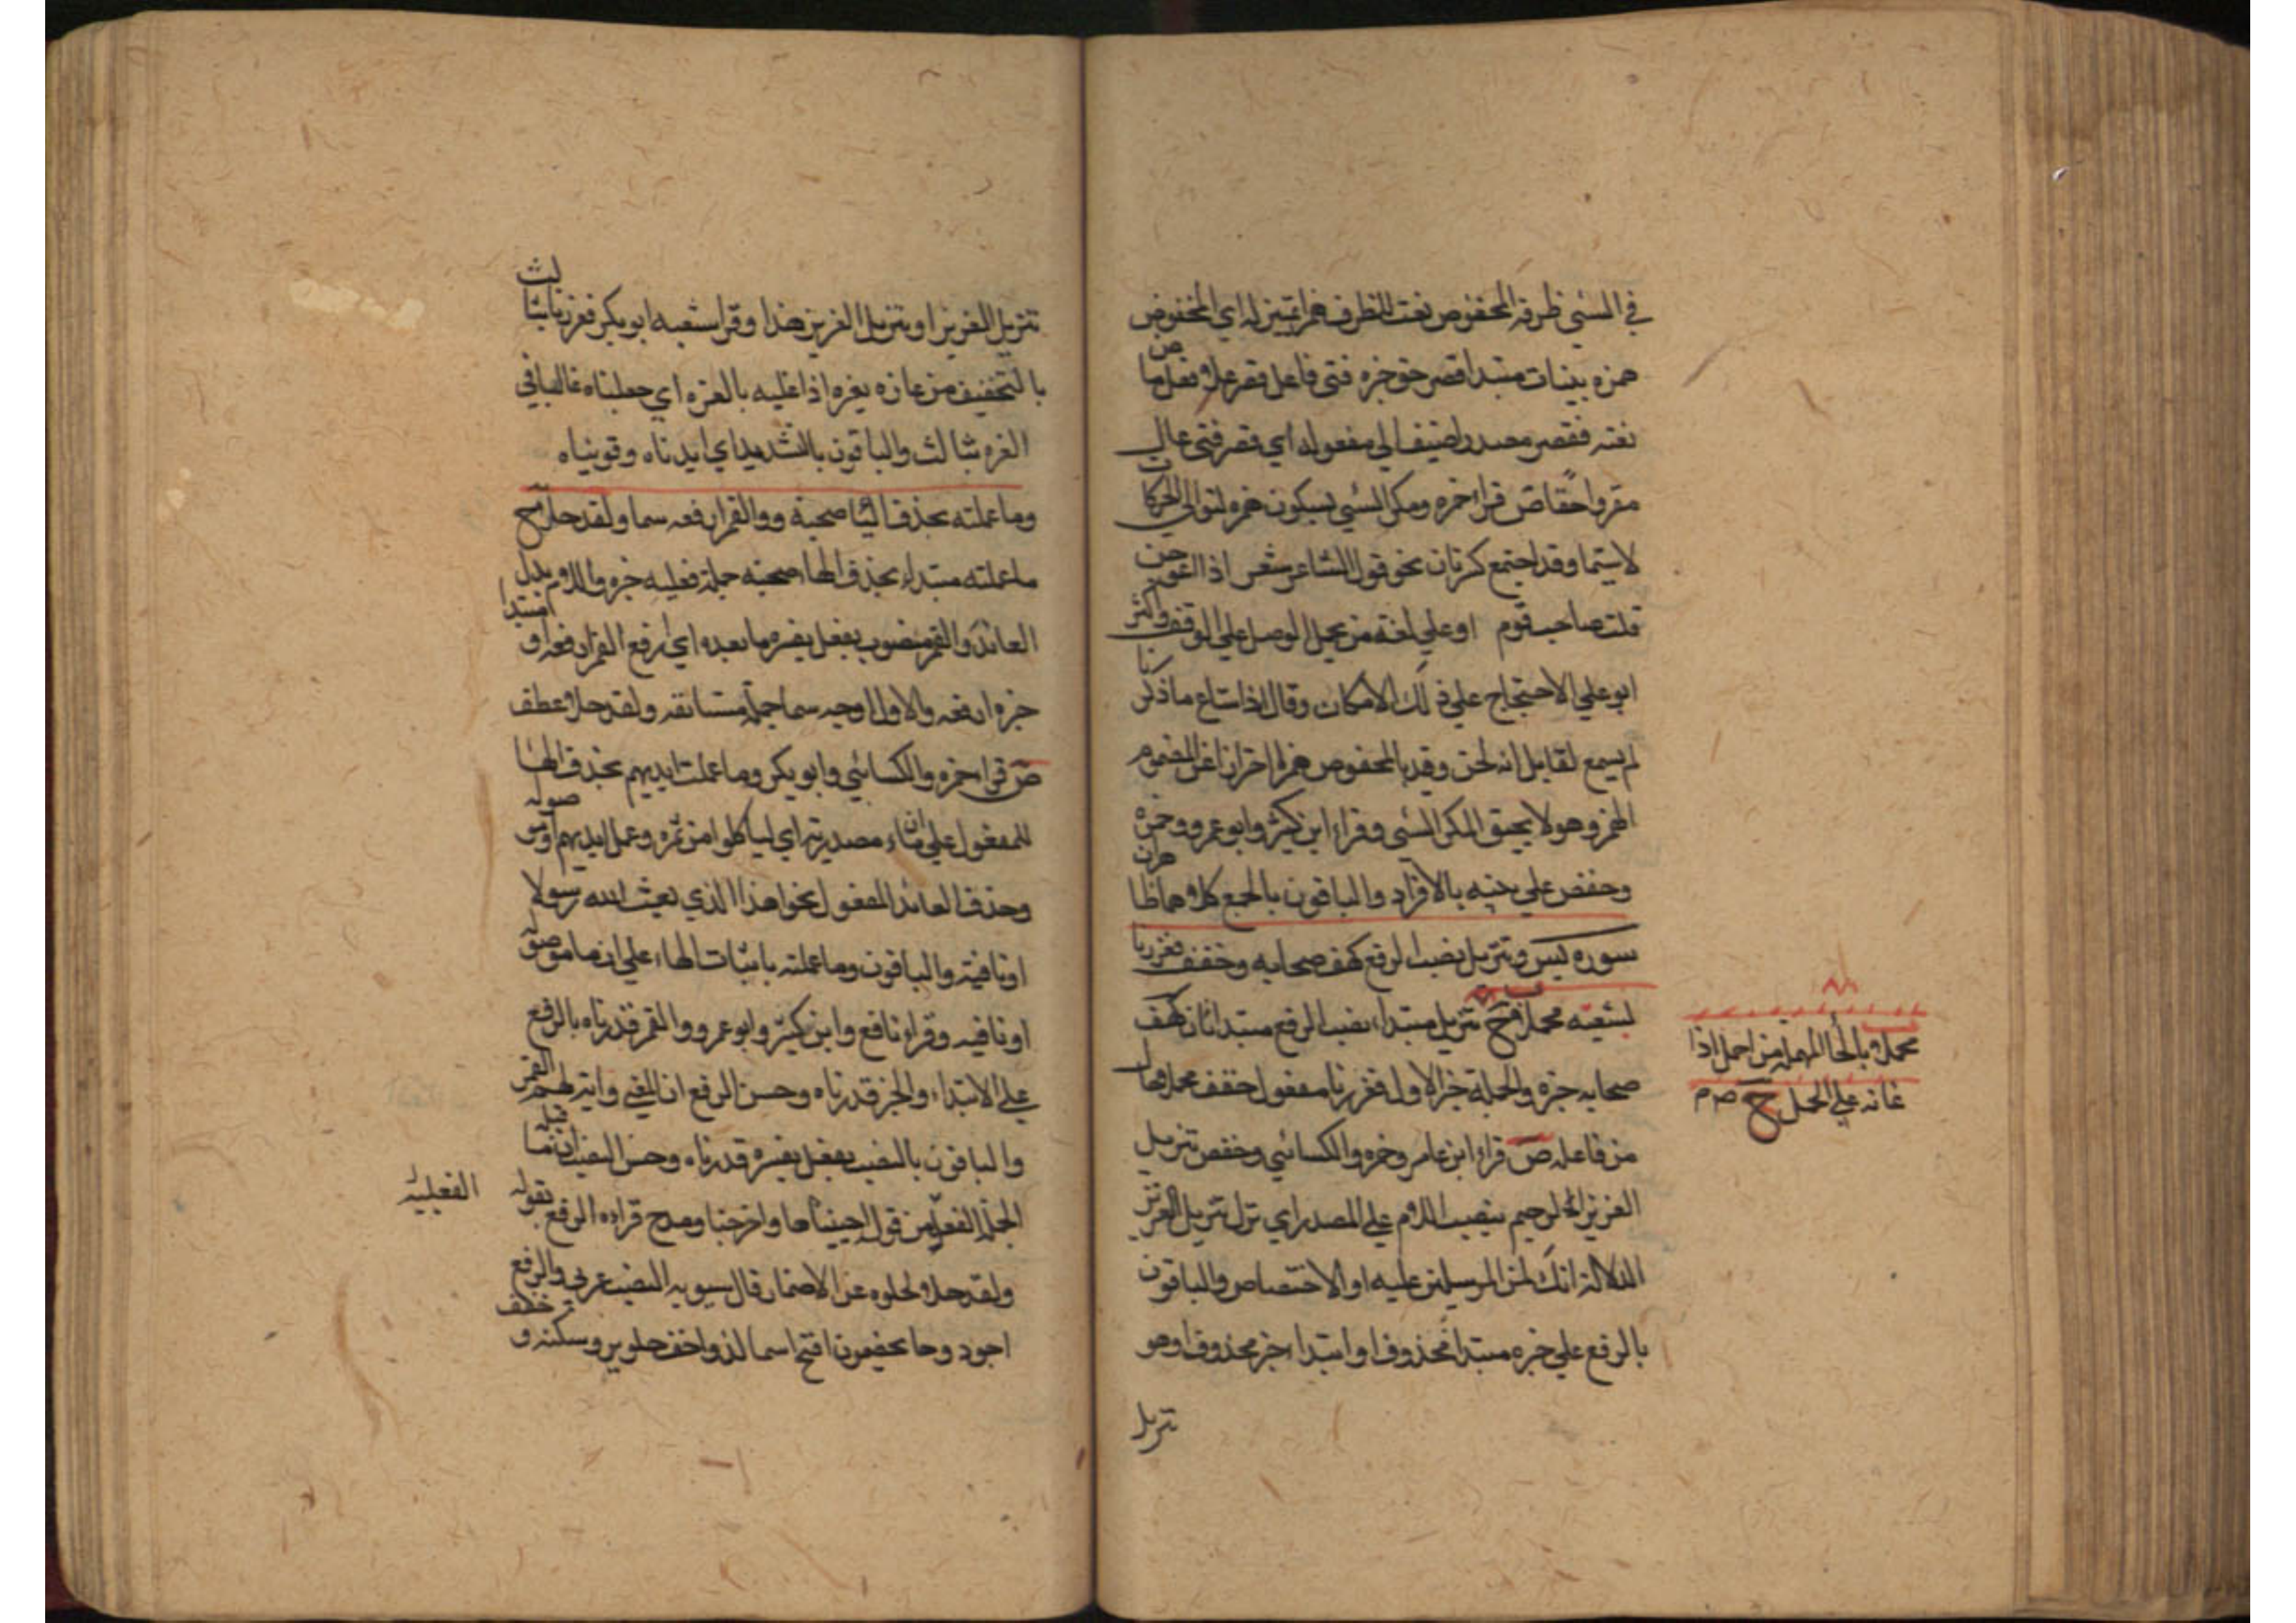 في السيئ ظرفه المخفوض نعت للظرف همزا تميز له اي المخفوض
همزه بينات مبتدا قصر حق خبره فتى فاعل قصر علا فعل ماض
نعته فقصر مصدر اضيف الي مفعوله اي قصر فتى عال
مقروا حقا ص قراء حمزه ومكر السيي بسكون همزه لتوالي الحركات
لاسيما وقد اجتمع كسرتان نحو قول الشاعر شعر اذا اعوججن
قلت صاحب قوم او علي لغة من يحمل الوصل علي الوقف واكثر
ابو علي الاحتجاج علي ذلك الامكان وقال اذا شاع ما ذكرنا
لم يسمع لقايل انه لحن وقيد بالمخفوض همزا احترازا عن المضموم
الهمز وهو لا يحيق المكر السيى وقراء ابن كثير وابو عمرو وحمزه
وحفص علي بينه بالافراد والباقون بالجمع كلاهما ظاهران
سوره يس وتنزيل نصب الرفع كهف صحابه وخفف فعززنا
لشعبه محملا ح تنزيل مبتداء نصب الرفع مبتدا ثان كهف
صحابه خبره والجملة خبر الاول فعززنا مفعول خفف محملا حال
من فاعله ص قراء ابن عامر وحمزه والكسائي وحفص تنزيل
العزيز الرحيم بنصب اللام علي المصدر اي نزل تنزيل العزيز
لدلالة انك لمن المرسلين عليه او الاختصاص والباقون
بالرفع علي خبره مبتدا محذوف او ابتداء خبر محذوف اي هو
تنزيل
محملا بالحا المهملة من احمل اذا
عانه علي الحمل ح ص م
تنزيل العزيز او تنزيل العزيز هذا وقرا شعبه ابو بكر فعززنا بثالث
بالتخفيف من عازه يعزه اذا غلبه بالعزه اي جعلناه غالبا في
العزه بثالث والباقون بالتشديد اي ايدناه وقويناه
وما عملته بحذف الها صحبة ووالقمر ارفعه سما ولقد حلا ح
ما عملته مبتداء بحذف الهاء صحبته جملة فعليه خبره واللام بدل
العائد والقمر منصوب بفعل يفسره ما بعده اي ارفع القمر ارفعه او مبتدا
خبره ارفعه والاول اوجه سما جملة مستانفه ولقد حلا عطف
ص قراء حمزه والكسائي وابو بكر وما عملت ايديهم بحذف الها
للمفعول علي ان ماء مصدرية اي لياكلوا من ثمره وعمل ايديهم او موصوله
وحذف العائد المفعول نحو اهذا الذي بعث الله رسولا
او نافية والباقون وما عملته باثبات الهاء علي ان ما موصوله
او نافيه وقراء نافع وابن كثير وابو عمرو والقمر قدرناه بالرفع
علي الابتداء والخبر قدرناه وحسن الرفع ان المعني واية لهم القمر
والباقون بالنصب بفعل يفسره قدرناه وحسن النصب ان ما قبله
الجملة الفعلية من قوله احييناها واخرجنا ومدح قراءه الرفع بقوله
ولقد حلا لخلوه عن الاضمار قال سيبويه النصب عربي والرفع
اجود وخا يخصمون افتح سما لذ واخف حلو بر وسكنه و خفف
الفعلية